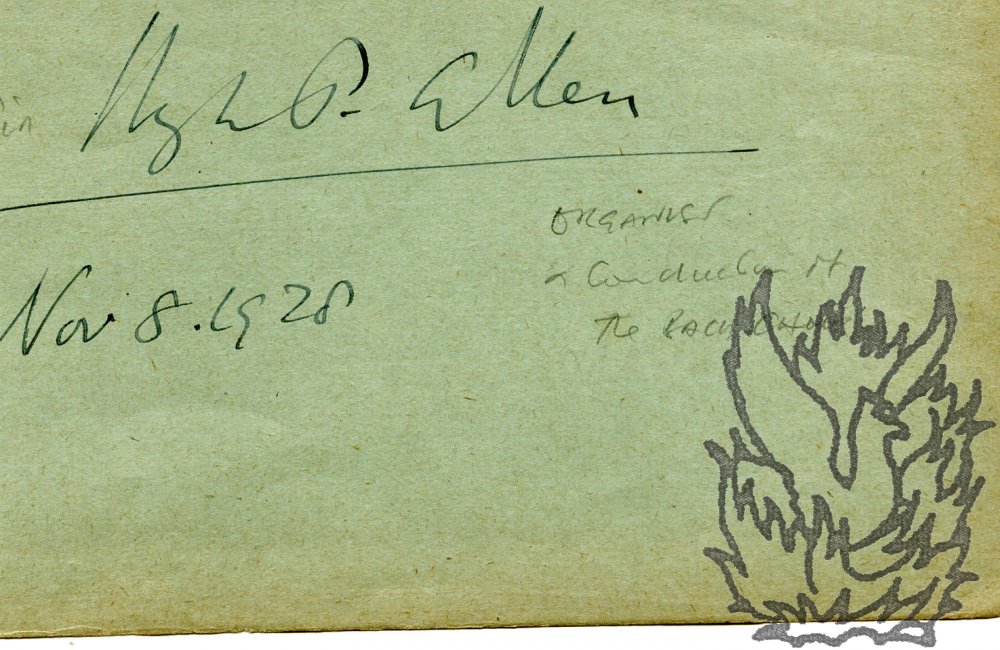 Hugh P. Allen
Nov 8. 1928
ORGANIST
& Conductor of
The BACH CHOIR